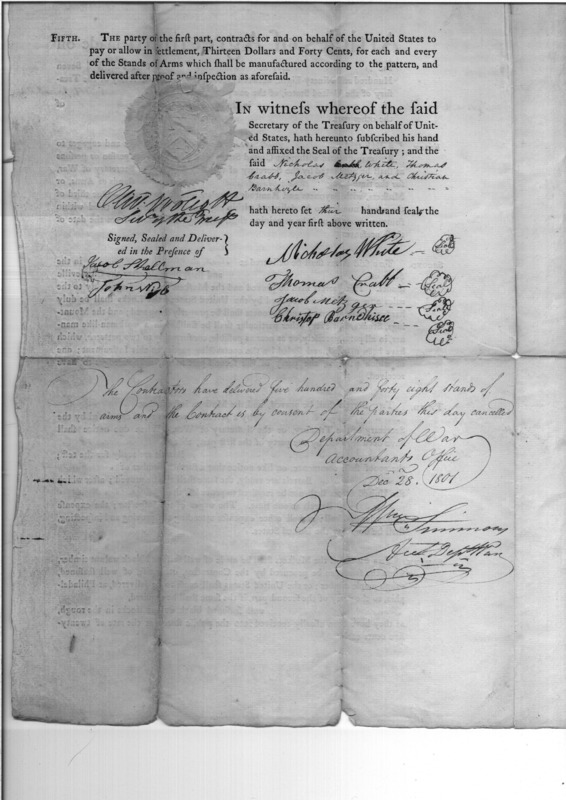 FIFTH. THE party of the first part, contracts for and on behalf of the United States to
pay or allow in settlement, Thirteen Dollars and Forty Cents, for each and every
of the Stands of Arms which shall be manufactured according to the pattern, and
delivered after proof and inspection as aforesaid.
IN witness whereof the said
Secretary of the Treasury on behalf of Unit-
ed States, hath hereunto subscribed his hand
and affixed the Seal of the Treasury; and the
said Nicholas White, Thomas
Crabb, Jacob Metzger, and Christian
Barnhizle " " " " " " "
hath hereto set their hands and seals the
day and year first above written.
Oliv. Wolcott
Secy of the Treasy
Signed, Sealed and Deliver-
ed in the Presence of
Nicholas White - Seal
Thomas Crabb - Seal
Jacob Metzger - Seal
Christof Barndhisel - Seal
The Contractors have delivered five hundred and forty eight stands of
arms and the Contract is by consent of the parties this day cancelled
Department of War
Accountants Office
Decr 28. 1801
Wm Simmons
Acct Dept War